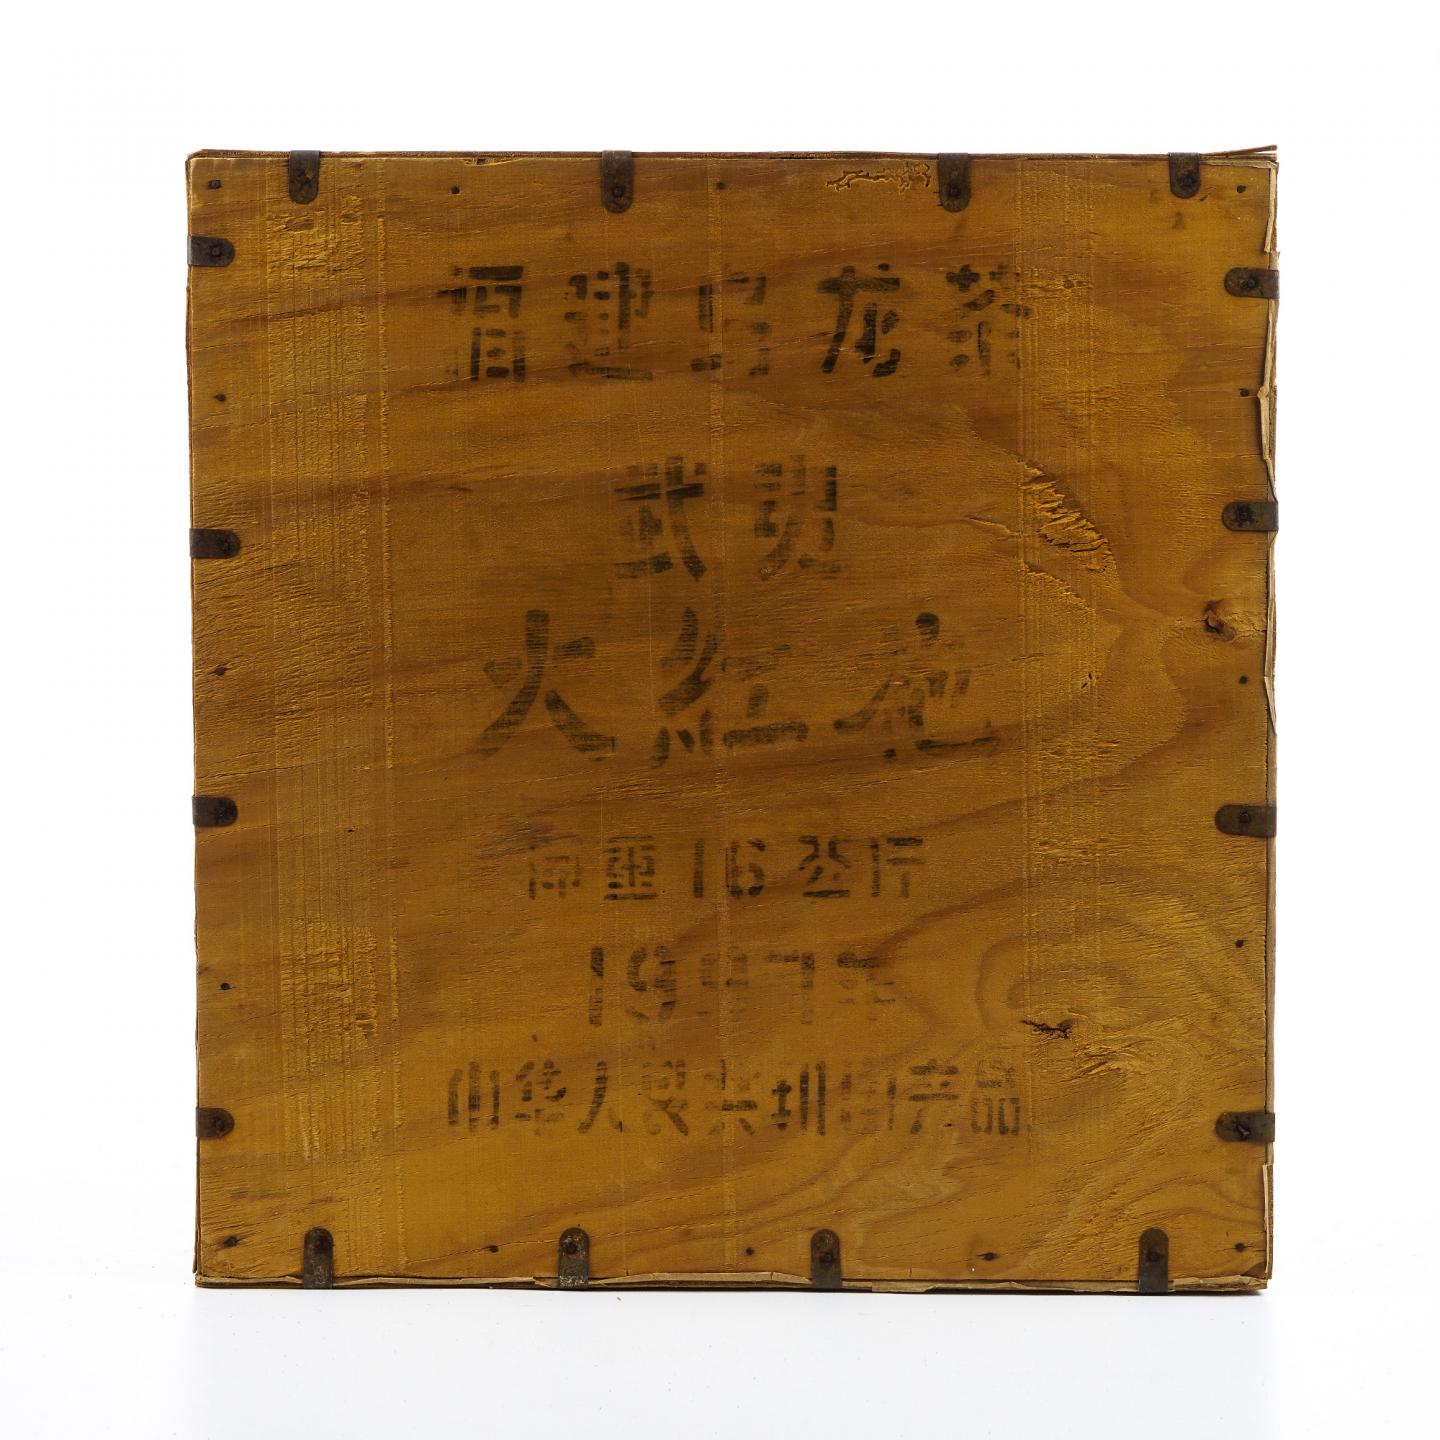 福建乌龙茶
武夷
大红袍
净重16公斤
1997年
中华人民共和国产品